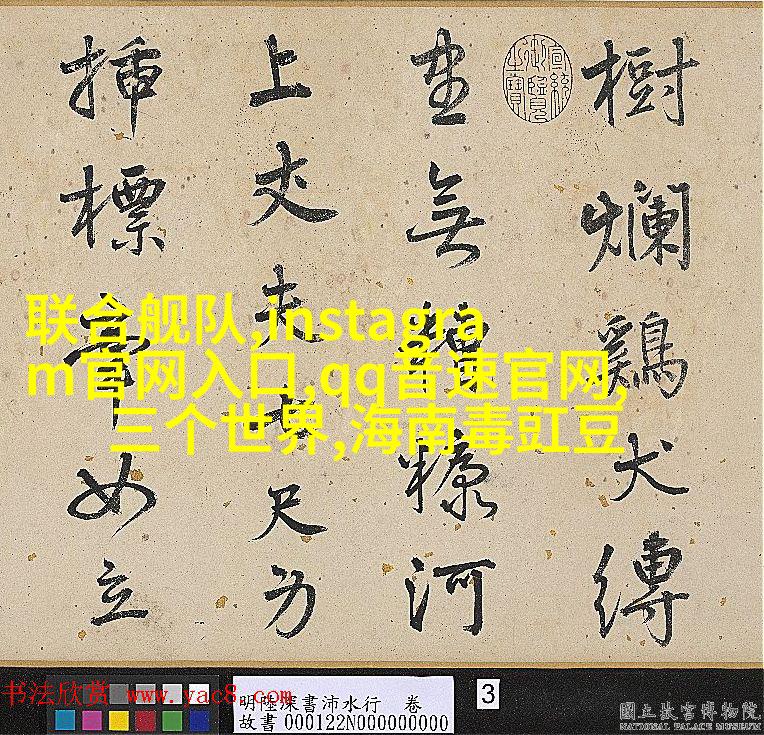 樹爛鷄犬縛
無糟糠河
上丈夫七尺
插標 立
宣統御覽之寶
联合舰队,instagra
m官网入口,qq音速官网,
三个世界,海南毒豇豆
书法欣赏 www.yac8.com
明陸深書沛水行 卷
故書000122N000000000
3
國立故宮博物院
NATIONAL PALACE MUSEUM